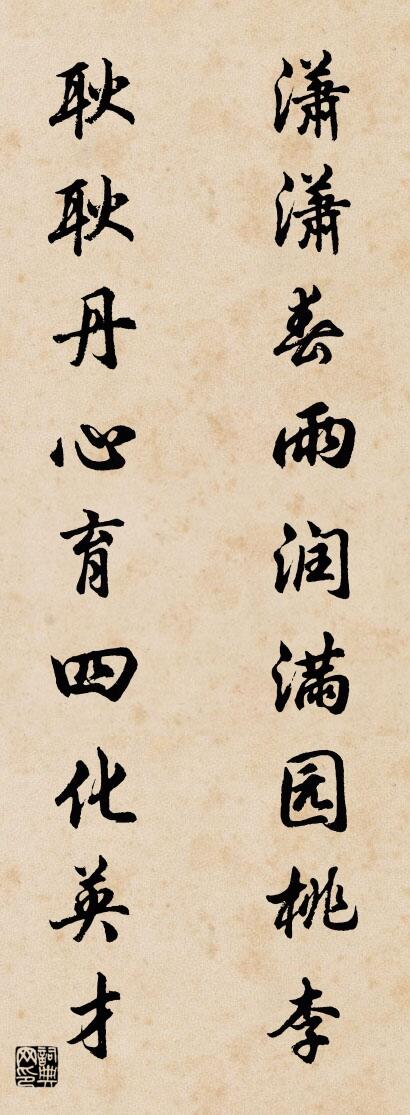 潇潇春雨润满园桃李
耿耿丹心育四化英才
詞典网印